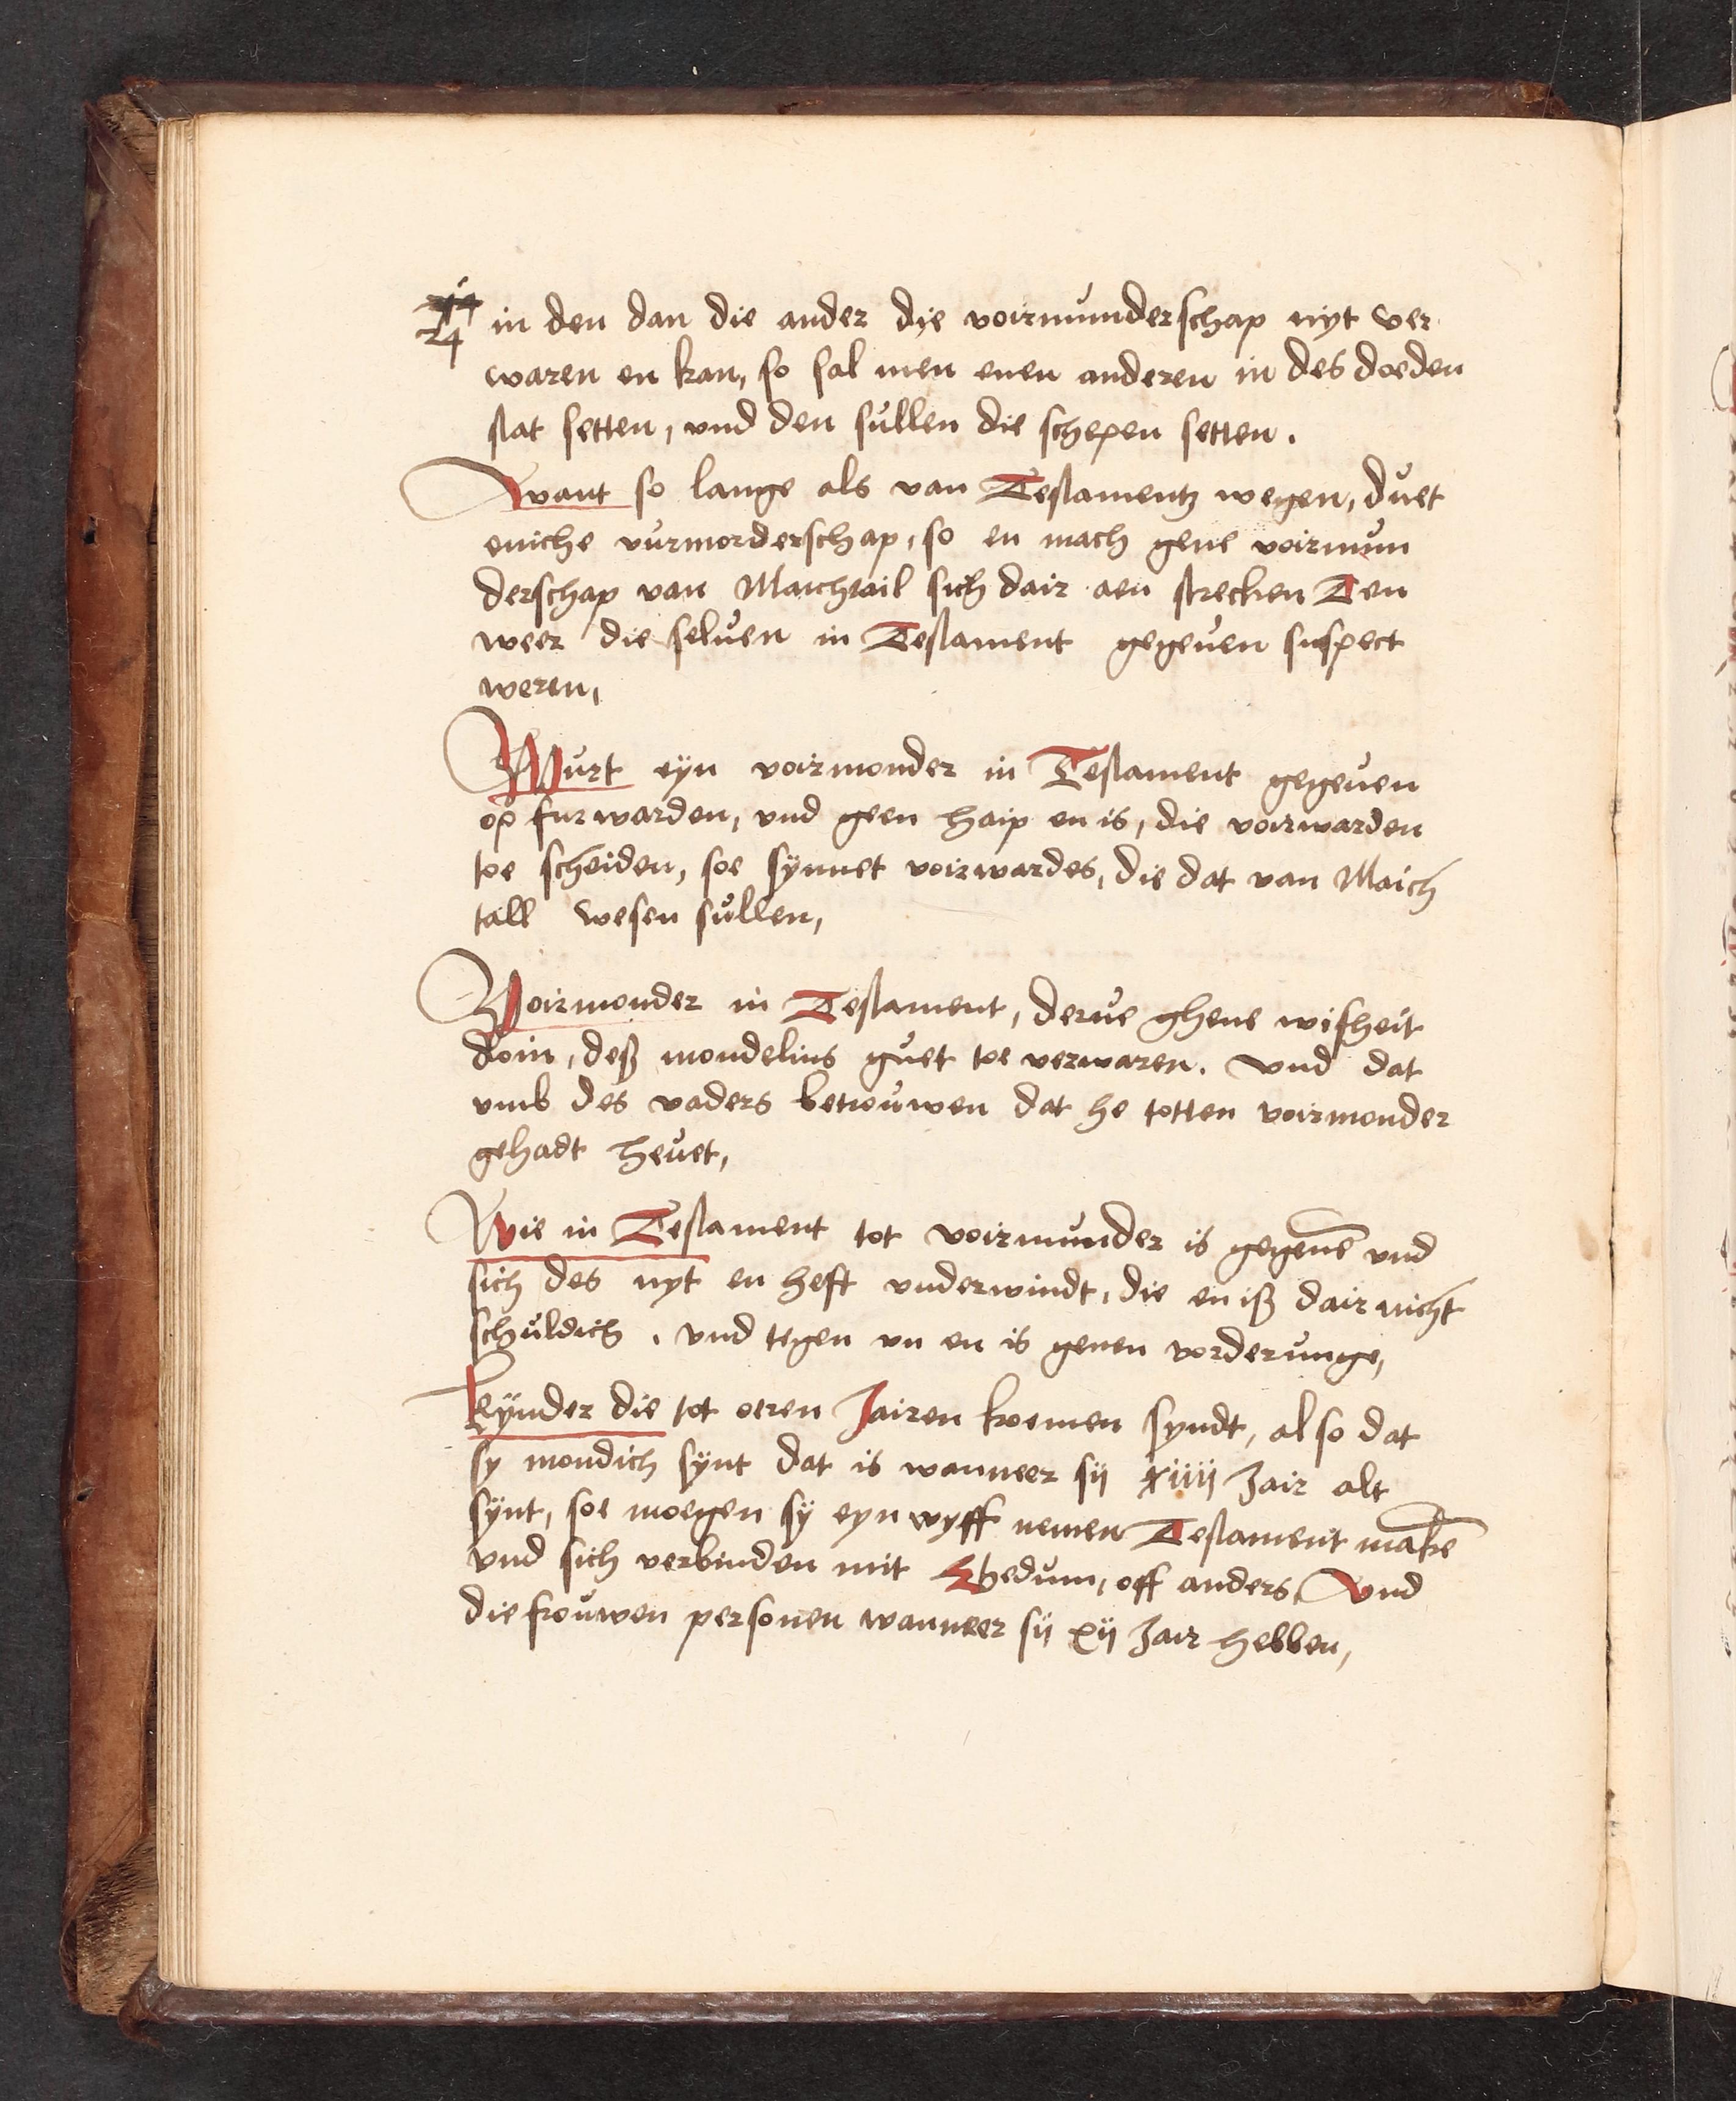 24 in den dan die ander die voirmunderschap nyt ver
waren en kan, so sal men enen anderen in des doeden
stat setten, vnd den sullen die schepen setten.
Want so lange als van Testamentz wegen, duet
eniche vurmorderschap, so en mach gene voirmun
derschap van Maichtail sich dair aen strecken Ten
weer die seluen in Testament gegeuen suspect
weren,
Wurt eyn voirmonder in Testament gegeuen
op furwarden, vnd geen haip en is, die voirwarden
toe scheiden, soe synnet voirwardes, die dat van Maich
tall wesen sullen,
Voirmonder in Testament, derue ghene wisheit
doin, deß mondelins guet toe verwaren. vnd dat
vmb des vaders betrouwen dat he totten voirmonder
gehadt heuet,
Wie in Testament tot voirmunder is gegeuē vnd
sich des nyt en heft vnderwindt, die en iß dair nicht
schuldich, vnd tegen vn en is genen vorderunge,
Kynder die tot oeren Jairen koemen syndt, also dat
sy mondich synt dat is wanneer sij xiiij Jair alt
synt, soe moegen sy eyn wyff nemen Testament makē
vnd sich verbinden mit Ehedum, off anders, Vnd
die frouwen personen wanneer sij xij Jair hebben,